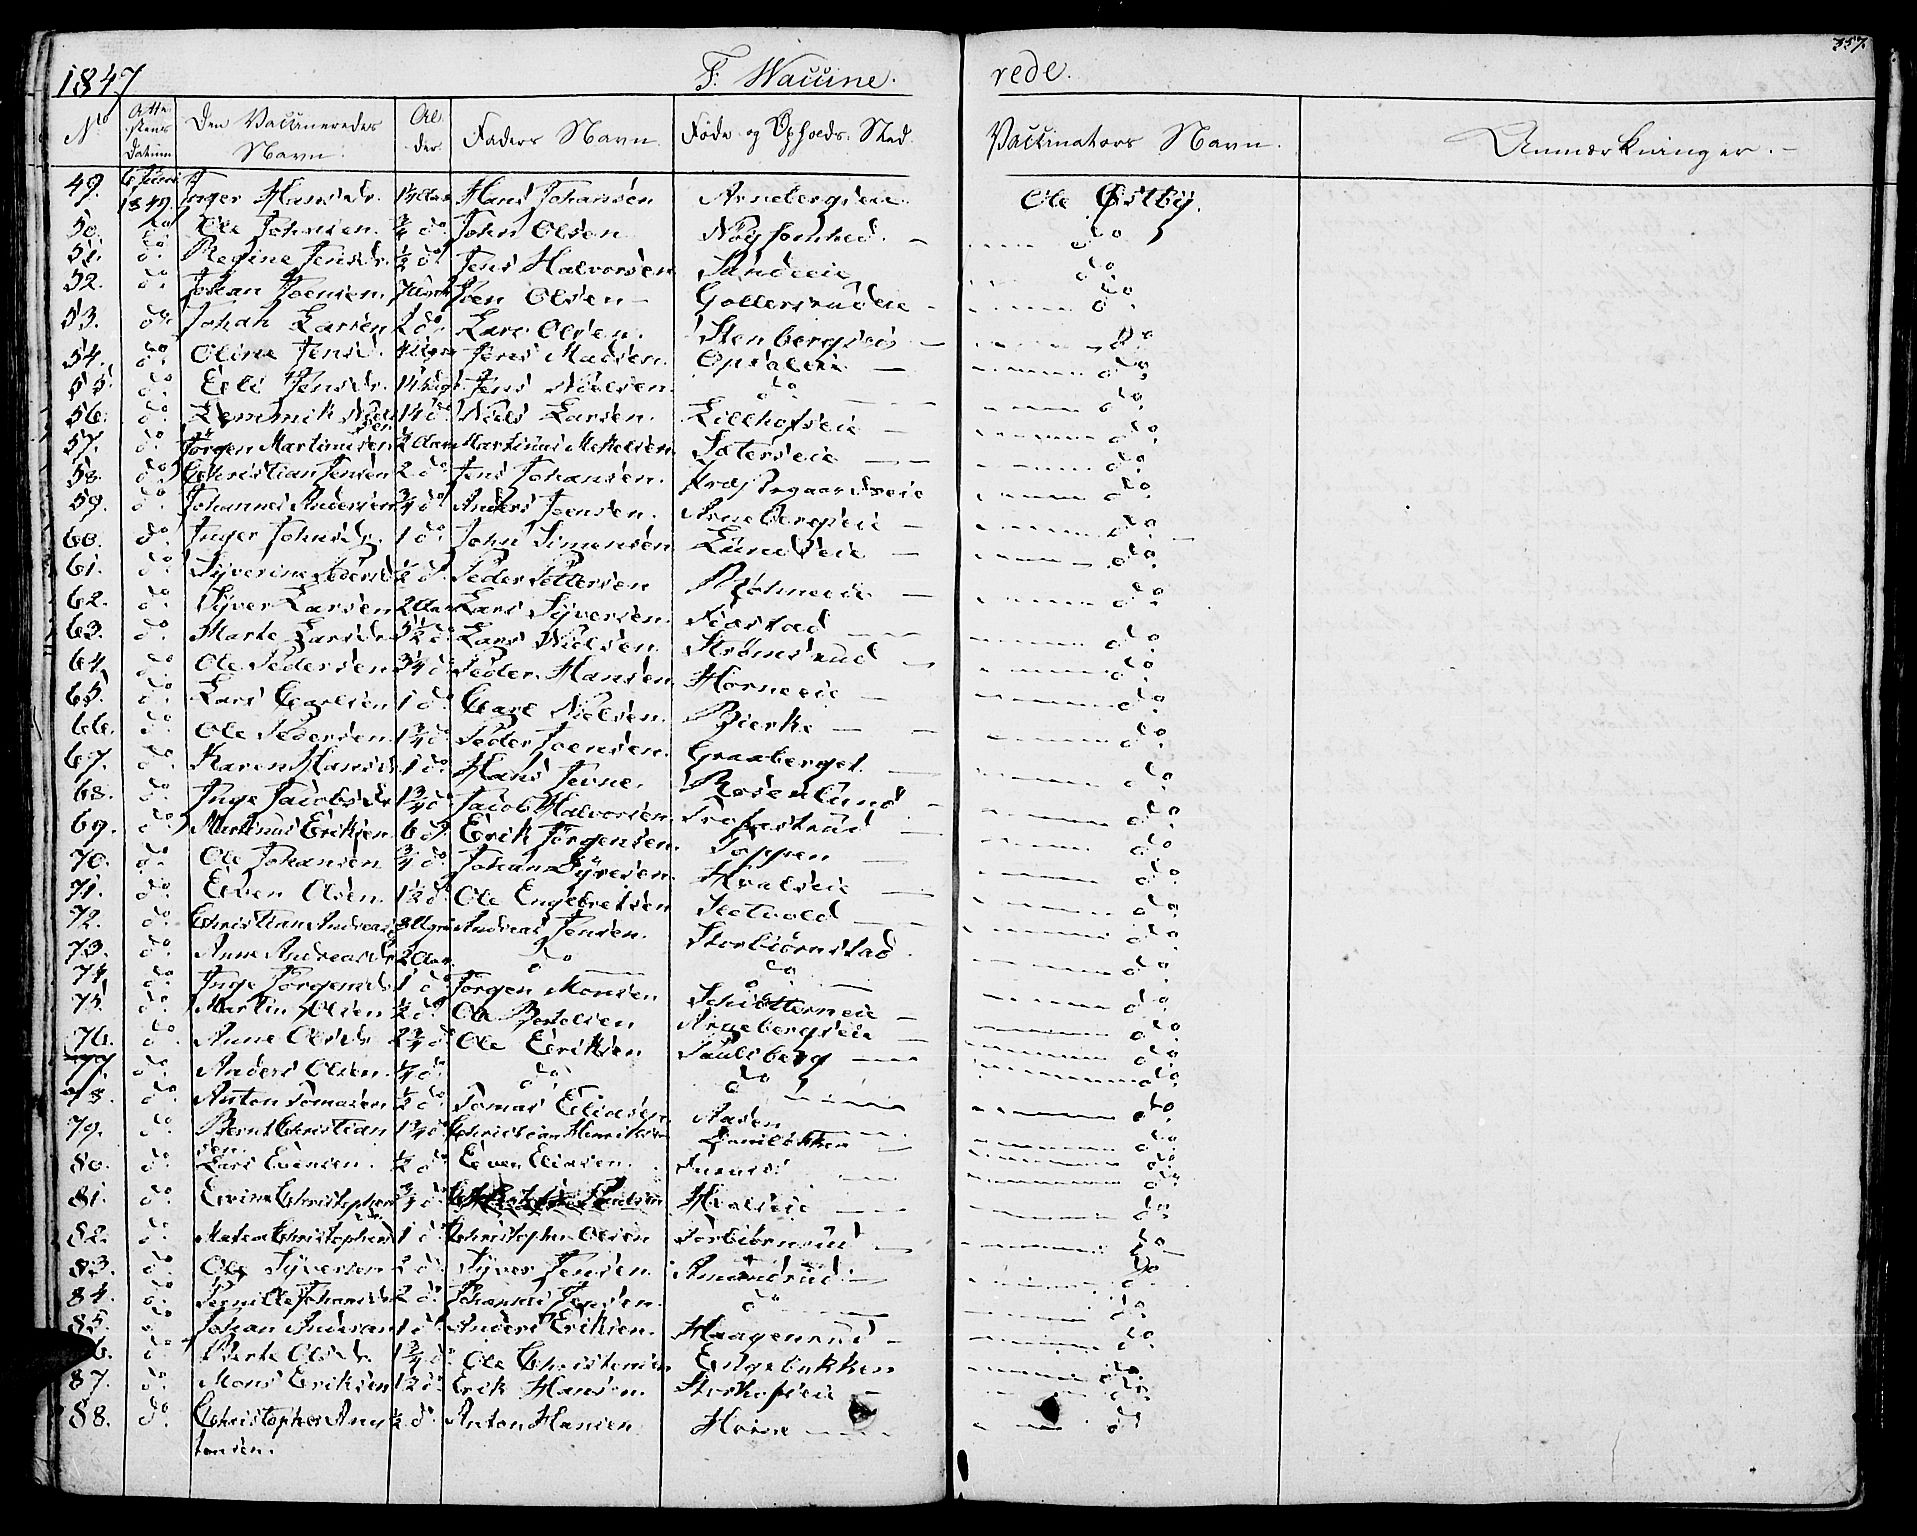 1847 F. Waccine. rede. 357.
No Atte stens Datum Den Vaccineredes Navn. Al der. Faders Navn. Føde og Opholds Sted. Vaccinators Navn. Anmærkninger.
49. 6 Juni 1847 Inger Hansdr. 1/4 Aar Hans Johansen Arnebergseie. Ole Østby.
50. do Ole Johnsen. 3/4 do John Olsen Nøysomhed. do
51. do Regine Jensdr. 1/2 do Jens Halvorsen Sandeeie do
52. do Johan Joensen. Joen Olsen Gollersrudeie do
53. do Johan Larsen 2 do Lars Olsen. Stenbergseie do
54. do Oline Jensd. Jens Madsen. Opsaleie do
55. do Eli Jensdr. Jens Nielsen. do do
56. do Lemmik Nielsen 14 do Niels Larsen. Lillhofseie do
57. do Jørgen Martinusen 1/2 Aar Martinus Mikkelsen. Sæterseie do
58. do Christian Jensen 2 do Jens Johansen. Præstegaardseie do
59. do Johannes Andersen 3/4 do Anders Joensen. Arnebergseie do
60. do Inger Johnsdr. 1 do John Simensen Lundseie do
61. do Syverine Pedersd 1/2 do Peder Pettersen do
62. do Syver Larsen 2 Aar Lars Syversen. Fiæstad do
63. do Marte Larsdr 5 1/2 do Lars Nielsen. Strømsrud do
64. do Ole Pedersen 3/4 do Peder Hansen Horneeie do
65. do Lars Carlsen 1 do Carl Nielsen. Bierke do
66. do Ole Pedersen. 1 3/4 do Peder Joensen. Graaberget do
67. do Karen Hansd. 1 do Hans Jevne. Rosenlund do
68. do Inge Jacobsdr 1 3/4 do Jacob Halvorsen do
69. do Martinus Eriksen. 6 do Erik Jørgensen. Toppen do
70. do Ole Johansen 3/4 do Johan Syversen. Hvalseie do
71. do Even Olsen. 1 1/2 do Ole Engebretsen do
72. do Christian Andreas Andreas Jensen. Storbiørnstad do
73. do Anne Andreasdr 2 Aar. do do do
74. do Inge Jørgensdr 1 do Jørgen Monsen Schiøtterneie do
75. do Martin Olsen 1/2 do Ole Arnebergseie do
76. do Anne Olsdr 2 3/4 do Ole Eriksen Paulsberg do
77. do Anders Olsen. 1/4 do do do do
78. do Anton Tomasen 1/2 do Tomas Eliasen Aasen do
79. do Bernt Christiansen. 1 3/4 do Christian Henriksen do
80. do Lars Evensen. 1/2 do Even Eliasen. Furnes do
81. do Evine Christophers 3/4 do Hvalseie do
82. do Matea Christophersd 1 do Christopher Olsen Torbiørnsrud do
83. do Ole Syversen 2 do Syver Jensen. Amundrud do
84. do Pernille Johansdr 2 do Johannes Jensen. do do
85. do Johan Andersen 1 do Anders Eriksen. Haagensrud do
6. do Berte Olsdr. 1 3/4 do Ole Christensen Engebakken do
87. do Mons Eriksen 1 1/2 do Erik Hansen. Storhofseie do
88. do Christopher Antonsen. 1/2 do Anton Hansen Horne do